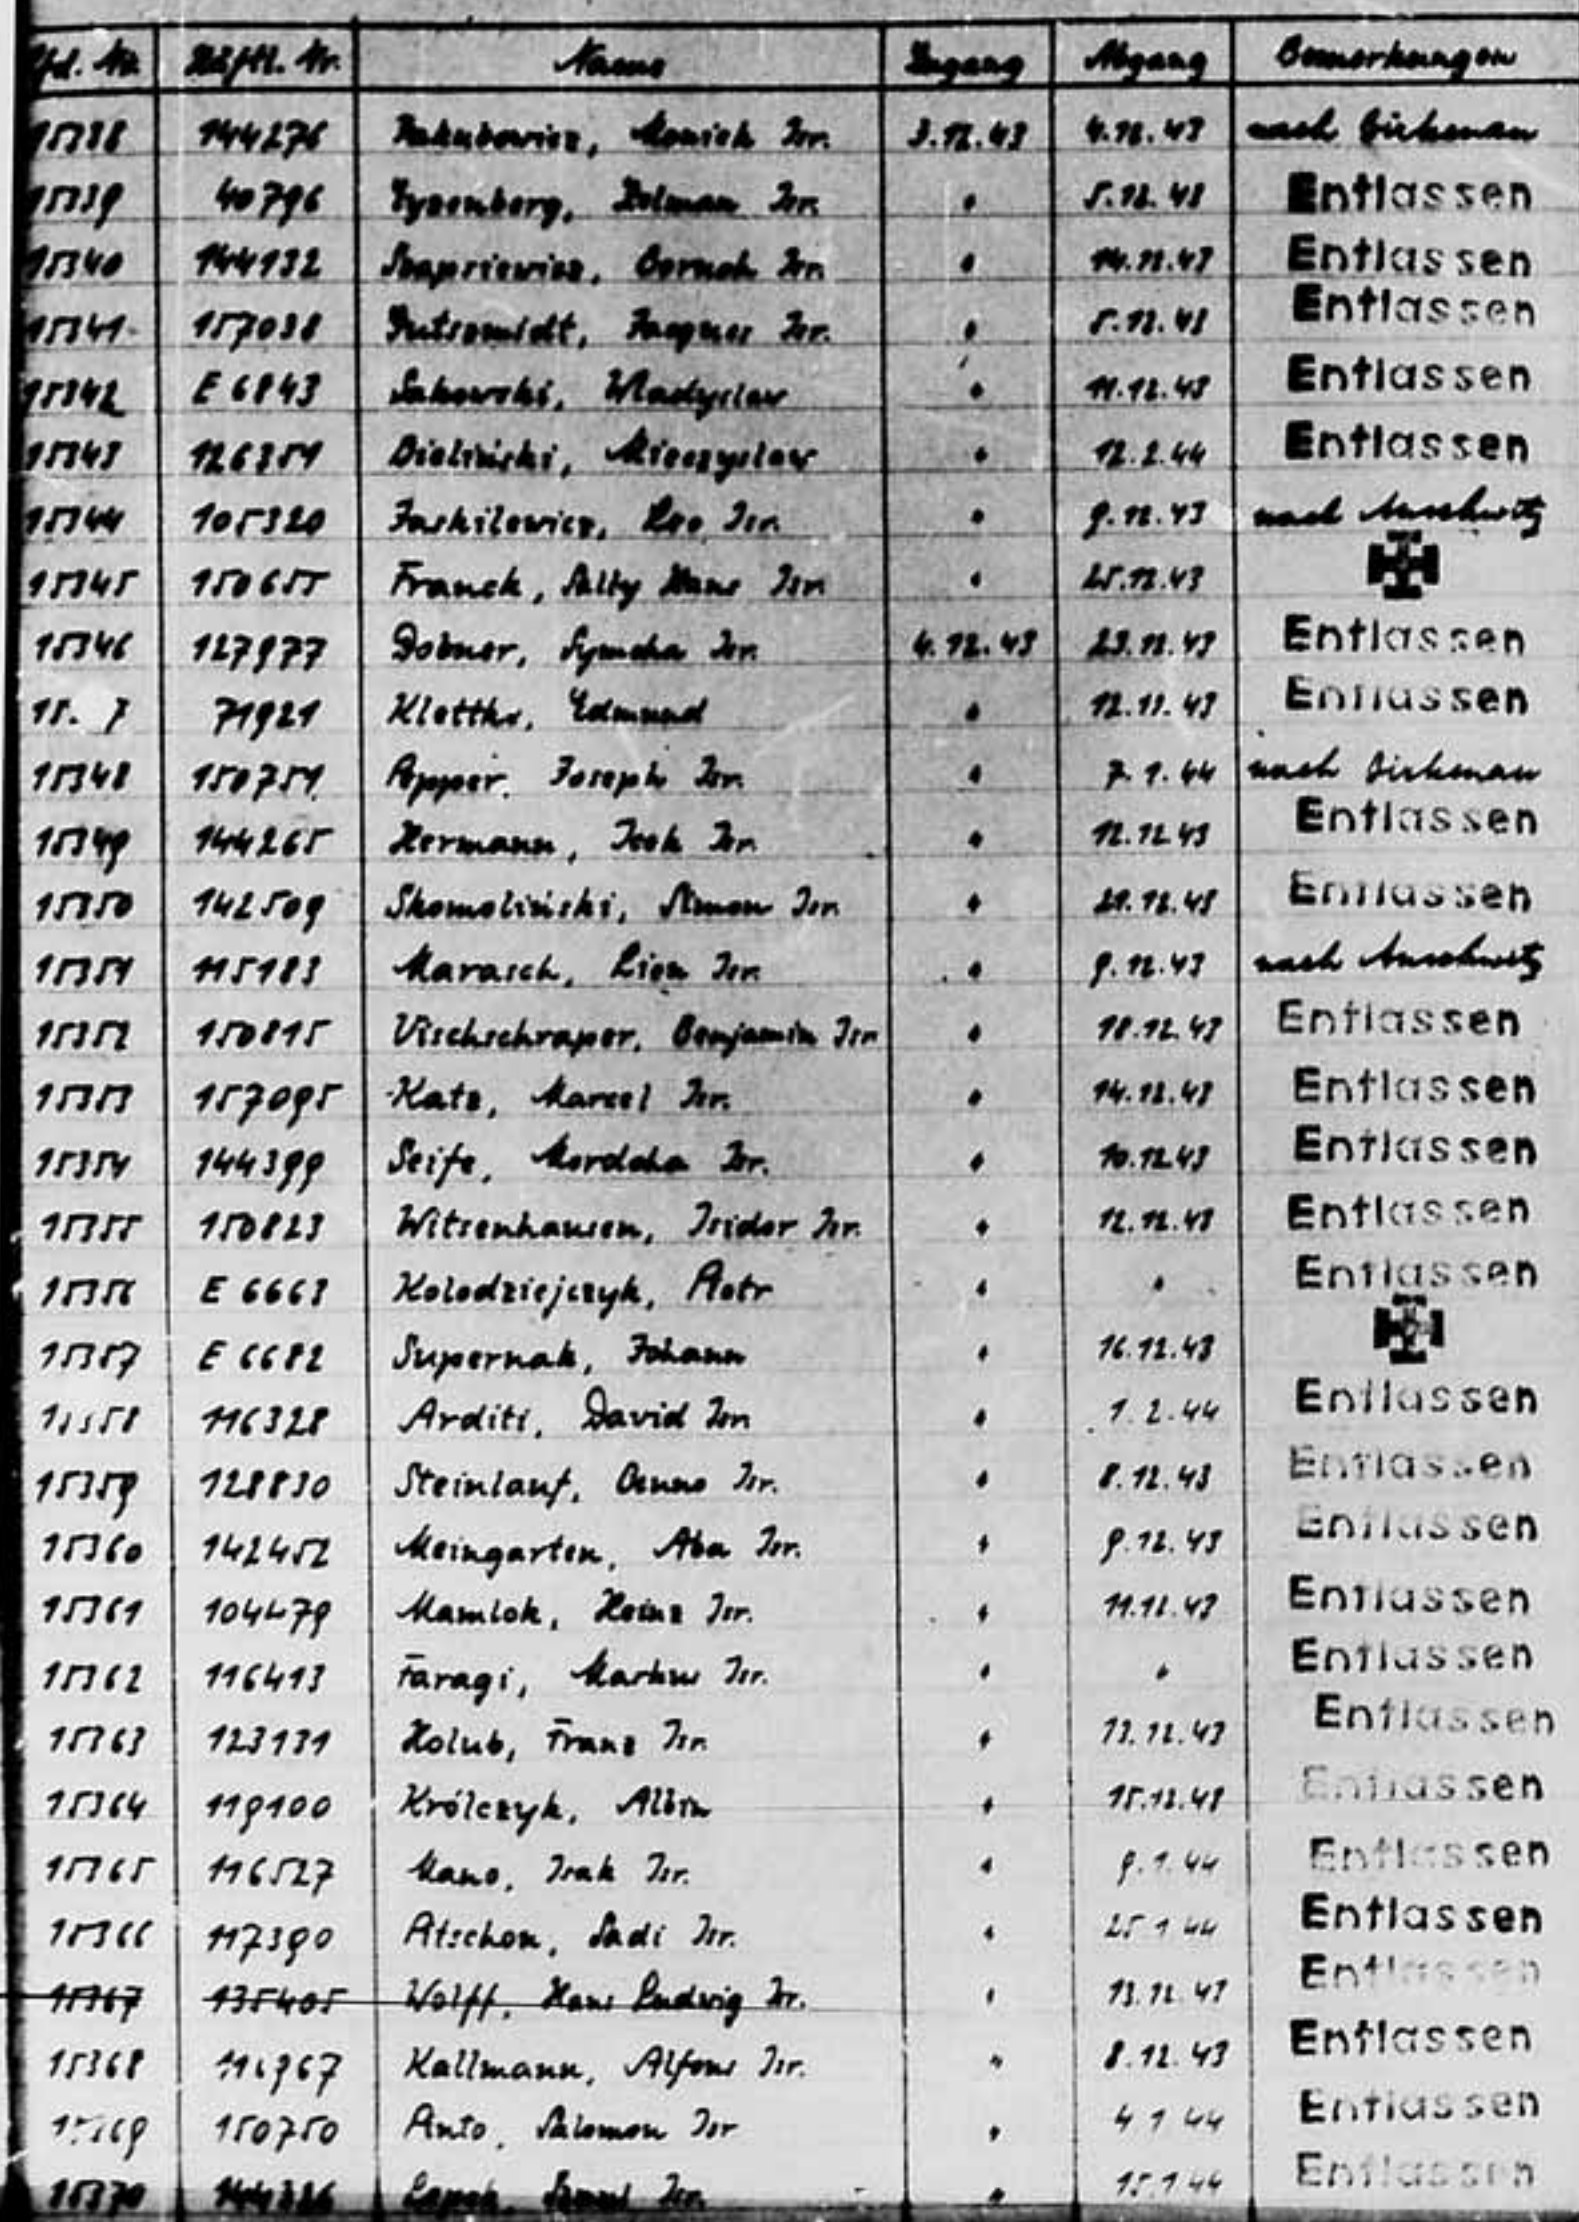 Lfd. Nr. Häftl. Nr. Name Zugang Abgang Bemerkungen
15338 144276 Jakubowicz, Moniek Isr. 3.12.43 4.12.43 nach Birkenau
15339 40796 Eyzenberg, Zelman Isr. " 5.12.43 Entlassen
15340 144132 Isr. " 14.12.43 Entlassen
15341 157038 Gutszmidt, Jacques Isr. " 5.12.43 Entlassen
15342 E 6843 Sakowski, Wladyslaw " 11.12.43 Entlassen
15343 126351 Bieliński, Mieczyslaw " 12.2.44 Entlassen
15344 105320 Jaskilewicz, Leo Isr. " 9.12.43 nach Auschwitz
15345 150655 Franck, Sally Hans Isr. " 25.12.43
15346 127977 Dobner, Symcha Isr. 4.12.43 23.12.43 Entlassen
15. 7 71921 Klettke, Edmund " 12.12.43 Entlassen
15348 150751 Pepper, Joseph Isr. " 7.1.44 nach Birkenau
15349 144265 Hermann, Icek Isr. " 12.12.43 Entlassen
15350 142509 Skomoliński, Simon Isr. " 21.12.43 Entlassen
15351 115183 Marasch, Lion Isr. " 9.12.43 nach Auschwitz
15352 150815 Vischschraper, Benjamin Isr. " 18.12.43 Entlassen
15353 157095 Katz, Marcel Isr. " 14.12.43 Entlassen
15354 144399 Seife, Mordcha Isr. " 10.12.43 Entlassen
15355 150823 Witsenhausen, Isidor Isr. " 12.12.43 Entlassen
15356 E 6663 Kolodziejczyk, Piotr " " Entlassen
15357 E 6682 Supernak, Johann " 16.12.43
15358 116328 Arditi, David Isr. " 1.2.44 Entlassen
15359 128830 Steinlauf, Benno Isr. " 8.12.43 Entlassen
15360 142452 Meingarten, Aba Isr. " 9.12.43 Entlassen
15361 104479 Mamlok, Heinz Isr. " 11.12.43 Entlassen
15362 116413 Faragi, Markus Isr. " " Entlassen
15363 123131 Holub, Franz Isr. " 13.12.43 Entlassen
15364 119100 Królczyk, Albin " 15.12.43 Entlassen
15365 116527 Mano, Isak Isr. " 9.1.44 Entlassen
15366 117390 Atschon, Sadi Isr. " 25.1.44 Entlassen
15367 135405 Wolff, Hans Ludwig Isr. " 13.12.43 Entlassen
15368 Kallmann, Alfons Isr. " 8.12.43 Entlassen
15369 150750 Anto, Salomon Isr. " 4.1.44 Entlassen
15370 144326 Isr. " 15.1.44 Entlassen